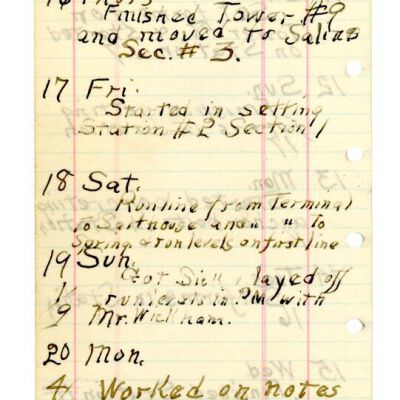 16 Thurs
Finished Tower #9
and moved to Salias
Sec. # 3.
17 Fri.
Started in setting
Station #2 Section 1
18 Sat.
Run line from Terminal
to Salthouse and " " to
Spring & run levels on first line
19 Sun.
1/9 Got Sick, layed off
run levels in PM with
Mr. Wickham.
20 Mon.
4 Worked on notes